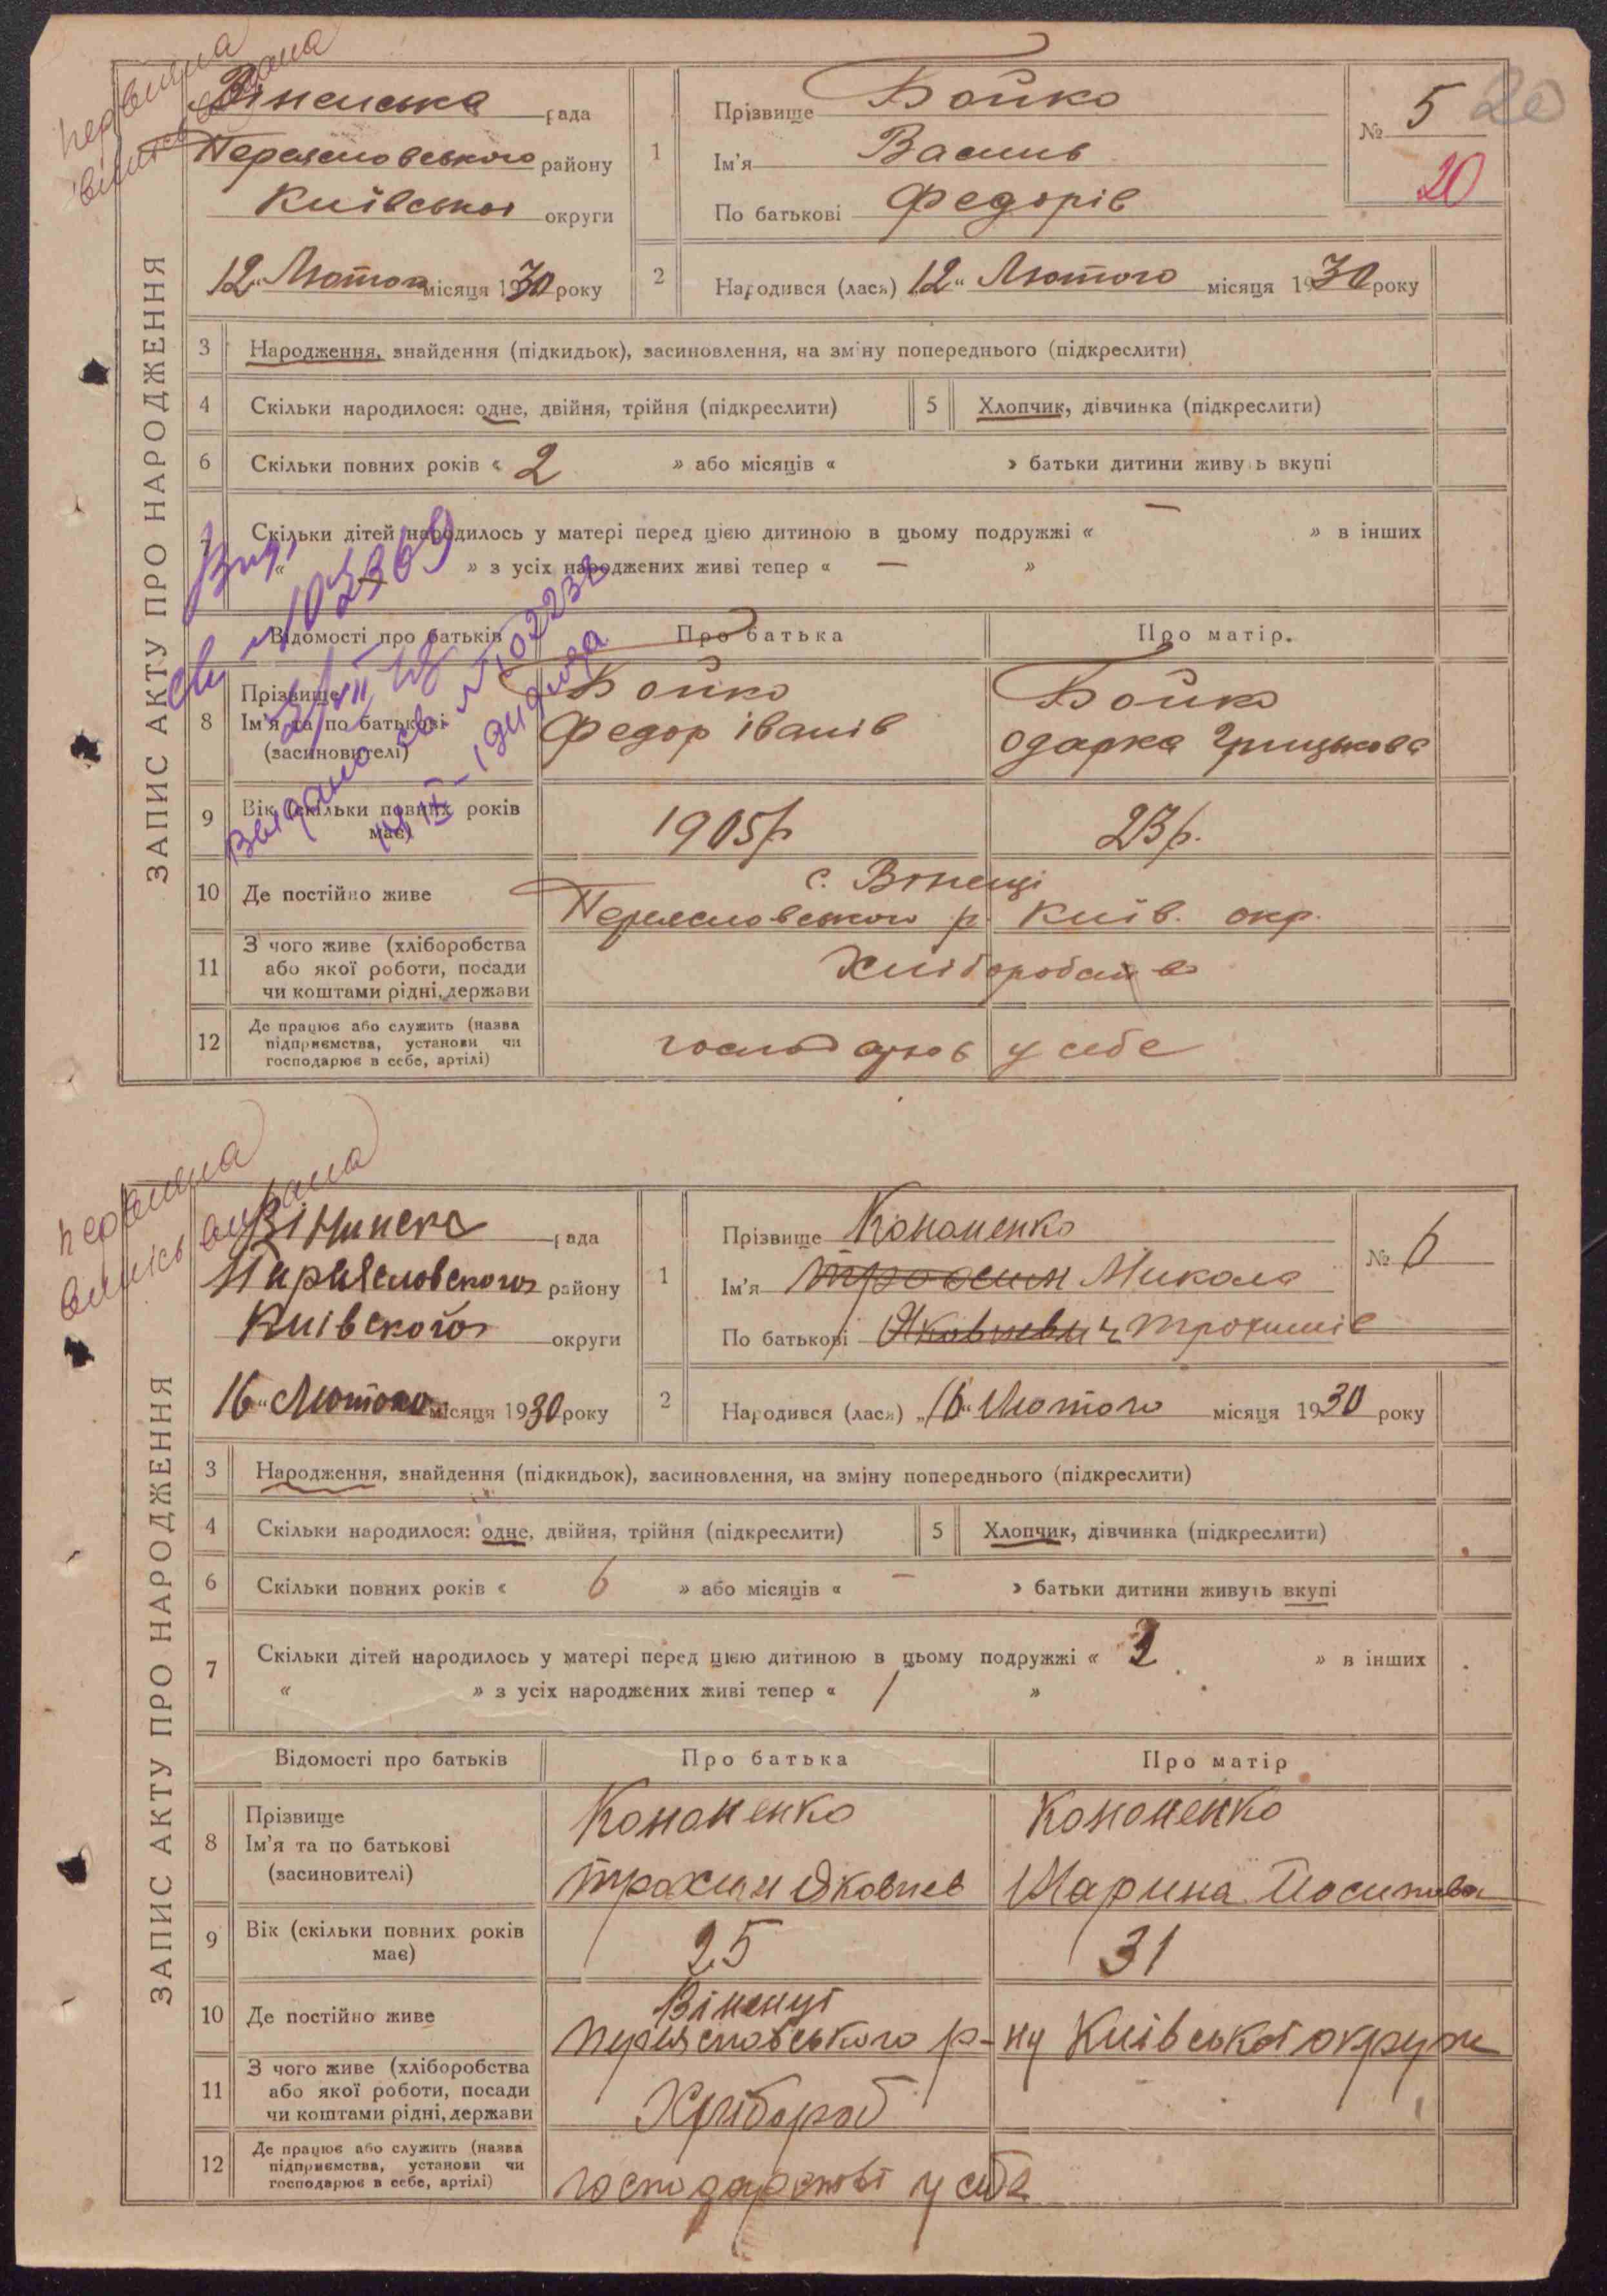 ЗАПИС АКТУ ПРО НАРОДЖЕННЯ
первинна
рада
Переяславського району
Київської округи
12 " Лютого місяця 1930 року
1
Прізвище Бойко
Ім'я Василь
По батькові Федорів
№ 5
20
20
2
Народився (лася) 12 " Лютого місяця 1930 року
3 Народження, знайдення (підкидьок), засиновлення, на зміну попереднього (підкреслити)
4 Скільки народилося: одне, двійня, трійня (підкреслити)
5 Хлопчик, дівчинка (підкреслити)
6 Скільки повних років « 2 » або місяців « » батьки дитини живуть вкупі
7 Скільки дітей народилось у матері перед цією дитиною в цьому подружжі « — » в інших
« — » з усіх народжених живі тепер « — »
Відомості про батьків Про батька Про матір.
8 Прізвище
Ім'я та по батькові
(засиновителі)
Бойко
Федор Іванів
Бойко
Одарка Грицькова
9 Вік (скільки повних років має)
1905р
23р.
10 Де постійно живе
с. Віненці
Переяславського р. Київ. окр.
11 З чого живе (хліборобства
або якої роботи, посади
чи коштами рідні, держави
Хліборобств
12 Де працює або служить (назва
підприємства, установи чи
господарює в себе, артілі)
господарює у себе
ЗАПИС АКТУ ПРО НАРОДЖЕННЯ
первинна
рада
району
Київского округи
16 " Лютого місяця 1930 року
1
Прізвище Кононенко
Ім'я Трохим Микола
По батькові Яковлевич Трохимів
№ 6
2
Народився (лася) „16 " Лютого місяця 1930 року
3 Народження, знайдення (підкидьок), засиновлення, на зміну попереднього (підкреслити)
4 Скільки народилося: одне, двійня, трійня (підкреслити)
5 Хлопчик, дівчинка (підкреслити)
6 Скільки повних років « 6 » або місяців « — » батьки дитини живуть вкупі
7 Скільки дітей народилось у матері перед цією дитиною в цьому подружжі « » в інших
« » з усіх народжених живі тепер « 1 »
Відомості про батьків Про батька Про матір
8 Прізвище
Ім'я та по батькові
(засиновителі)
Кононенко
Трохим Яковлев
Кононенко
Марина Йосипова
9 Вік (скільки повних років має)
25
31
10 Де постійно живе
Віненці
Переяславського р-ну Київської округи
11 З чого живе (хліборобства
або якої роботи, посади
чи коштами рідні, держави
Хлібороб
12 Де працює або служить (назва
підприємства, установи чи
господарює в себе, артілі)
у себе